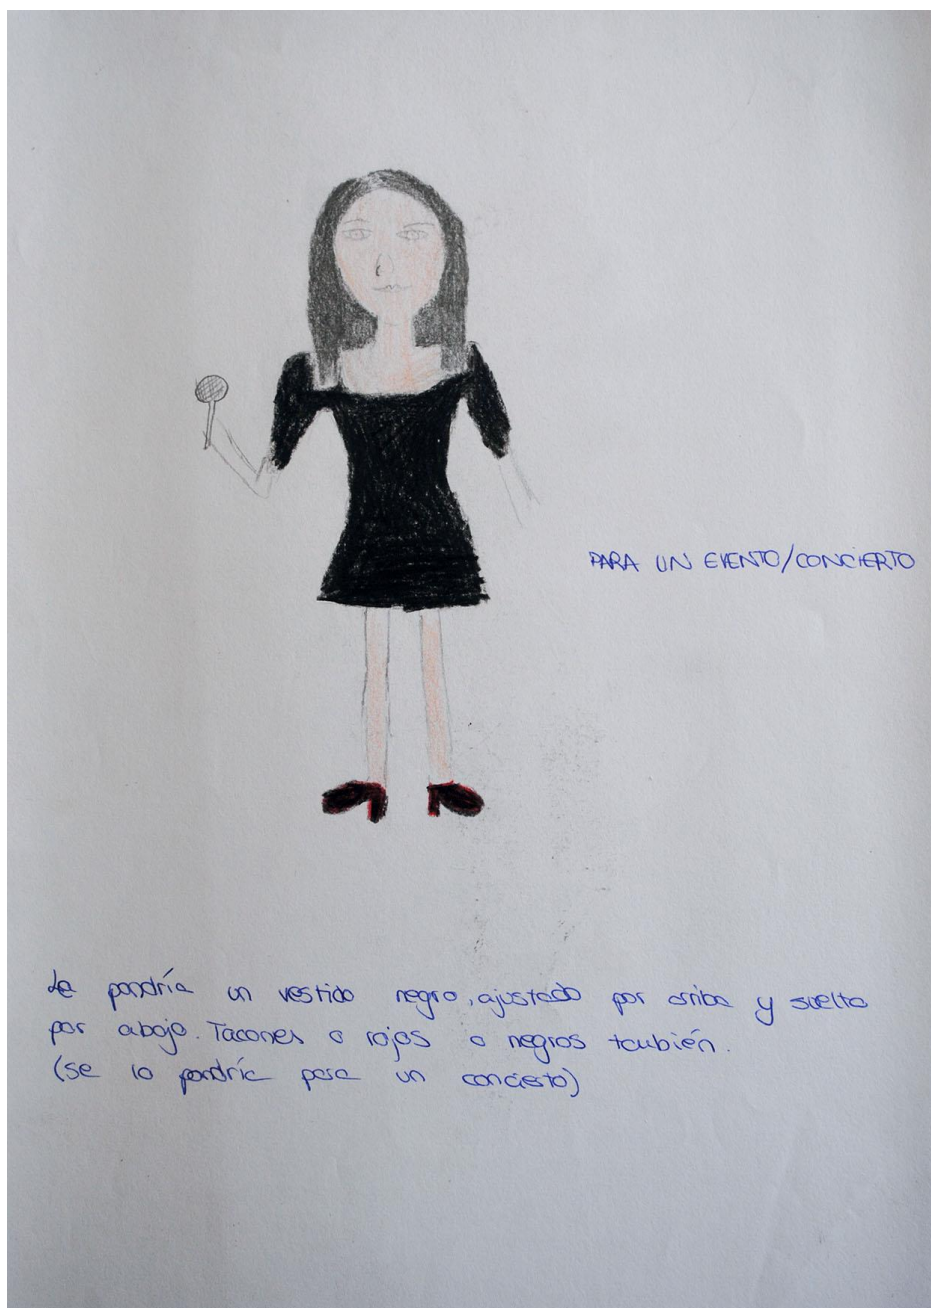 PARA UN EVENTO/CONCIERTO
Le pondría un vestido negro, ajustado por arriba y suelto
por abajo. Tacones o rojos o negros también.
(se lo pondría para un concierto)